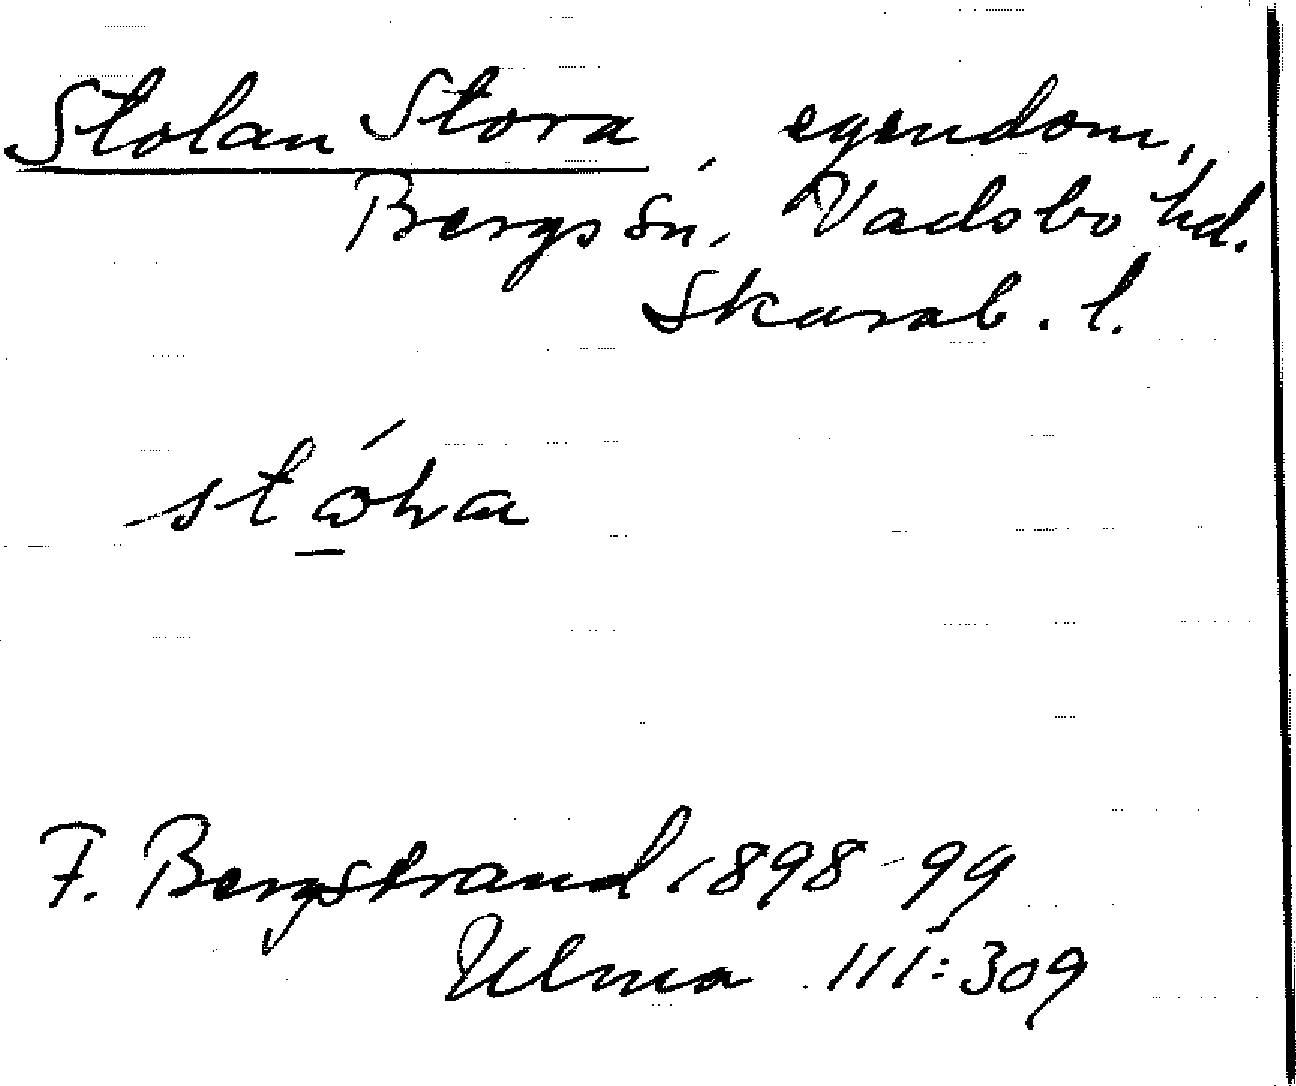 Stolan Stora, egendom,
Bergs sn, Vadsbo hd.
Skarab. l.
F. Bergstrand 1898-99
Ulma 111:309